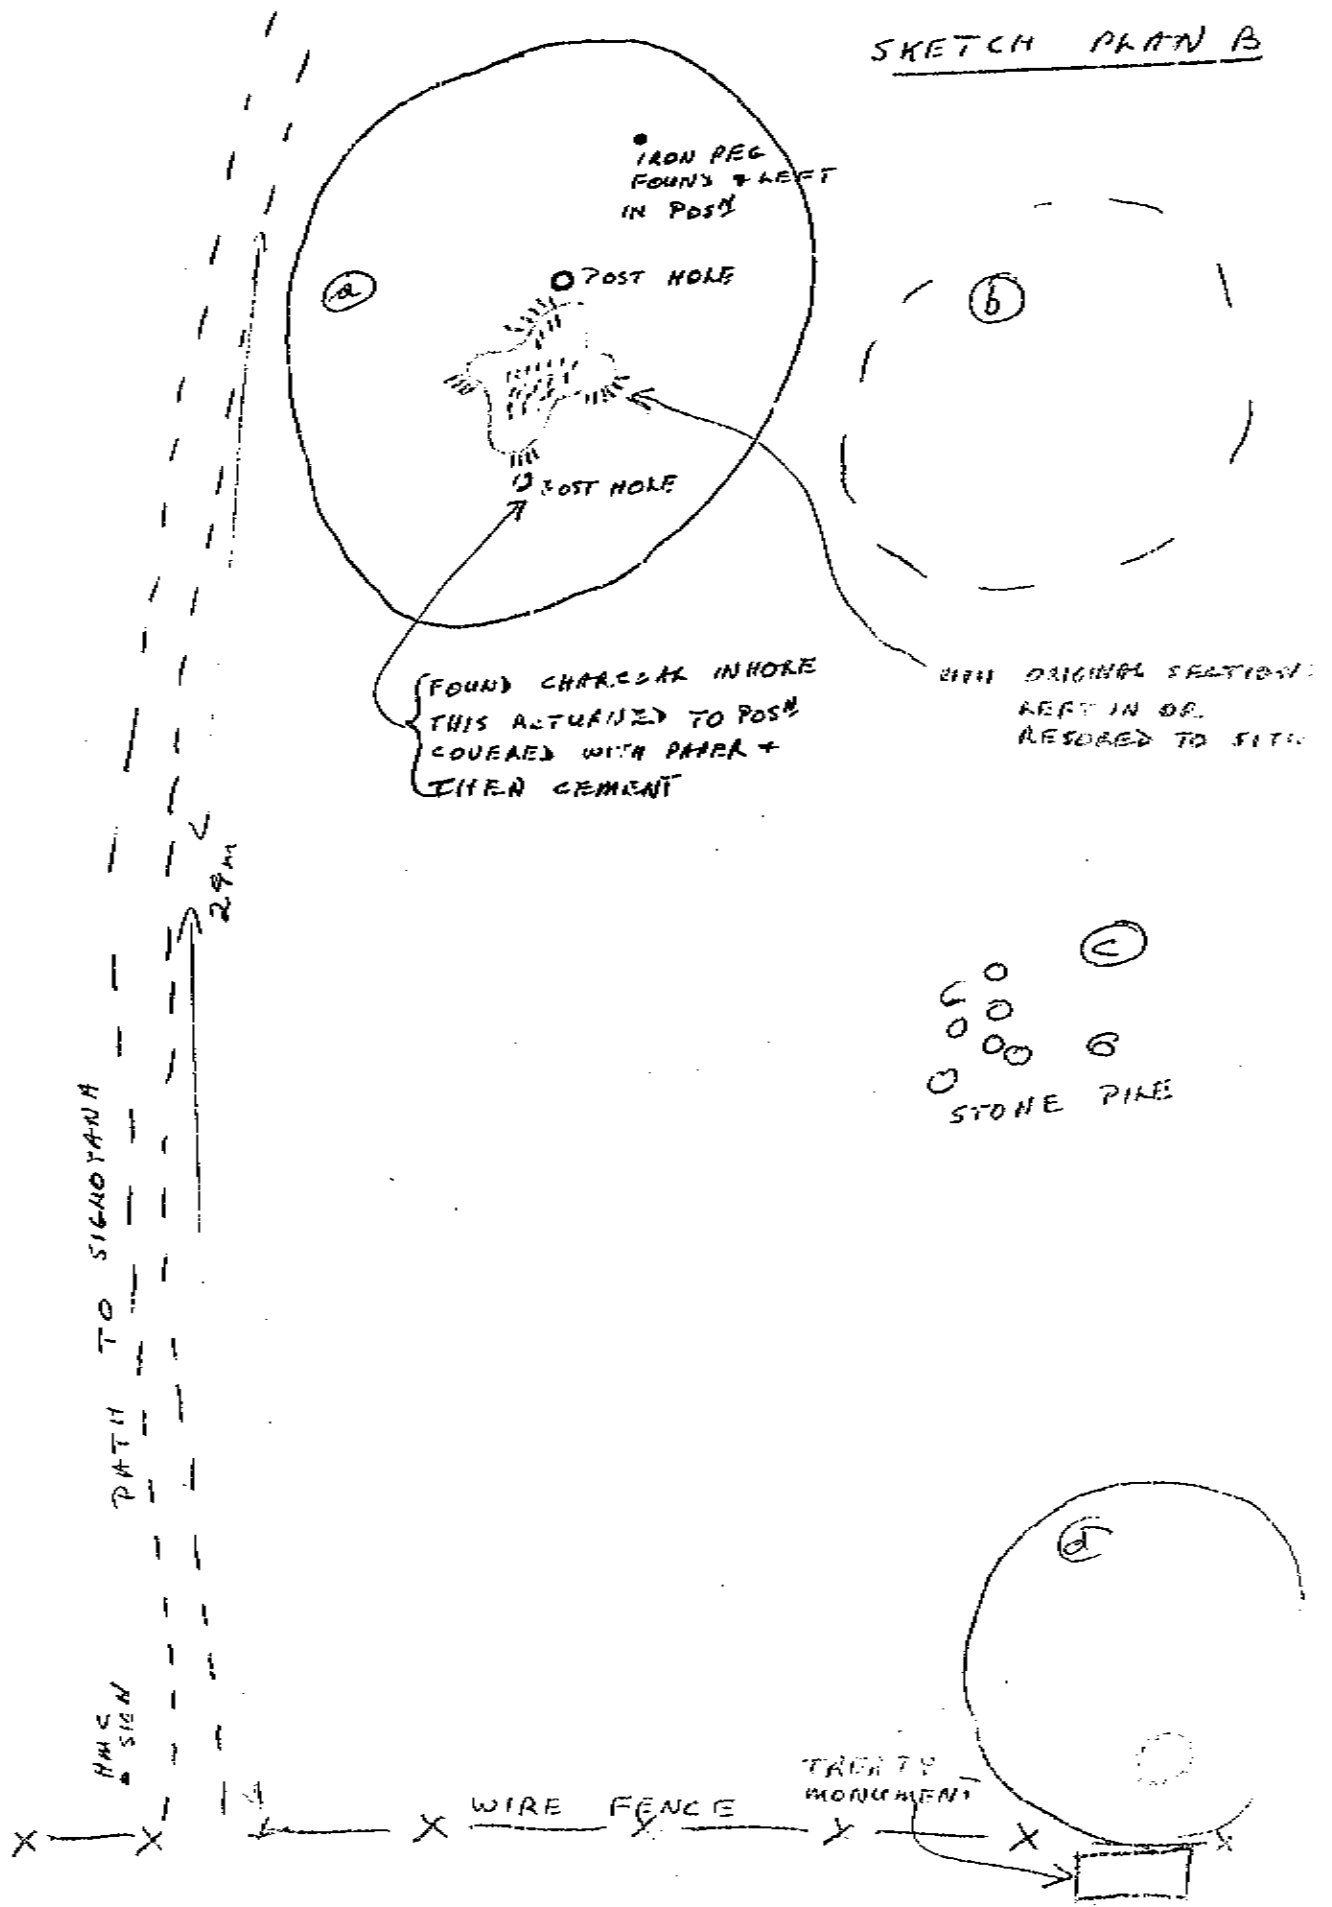 SKETCH PLAN B
IRON PEG
FOUND + LEFT
IN POSN
a
POST HOLE
b
POST HOLE
FOUND CHARCOAL IN HOLE
THIS RETURNED TO POSN
COVERED WITH PAPER +
THEN CEMENT
ORIGINAL SECTION
LEFT IN OR
RESORED TO SITU
29m
c
STONE PILE
PATH TO SIGNOTANA
d
HMC
SIGN
TREATY
MONUMENT
WIRE FENCE